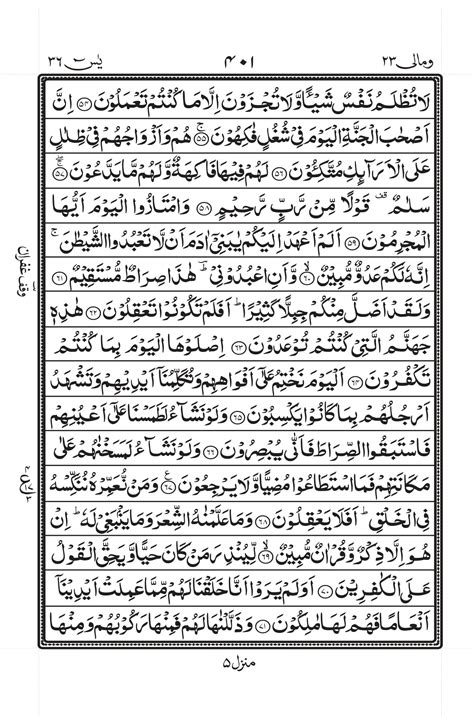 ومالی ٢٣ ٤٠١ یٰس ٣٦
لَا تُظْلَمُ نَفْسٌ شَيْـًٔا وَّلَا تُجْزَوْنَ اِلَّا مَا كُنْتُمْ تَعْمَلُوْنَ ﴿٥٤﴾ اِنَّ
اَصْحٰبَ الْجَنَّةِ الْيَوْمَ فِيْ شُغُلٍ فٰكِهُوْنَ ﴿٥٥﴾ۚ هُمْ وَاَزْوَاجُهُمْ فِيْ ظِلٰلٍ
عَلَى الْاَرَآئِكِ مُتَّكِـُٔوْنَ ﴿٥٦﴾ لَهُمْ فِيْهَا فَاكِهَةٌ وَّلَهُمْ مَّا يَدَّعُوْنَ ﴿٥٧﴾ۚ
سَلٰمٌ ۣ قَوْلًا مِّنْ رَّبٍّ رَّحِيْمٍ ﴿٥٨﴾ وَامْتَازُوا الْيَوْمَ اَيُّهَا
الْمُجْرِمُوْنَ ﴿٥٩﴾ اَلَمْ اَعْهَدْ اِلَيْكُمْ يٰبَنِيْٓ اٰدَمَ اَنْ لَّا تَعْبُدُوا الشَّيْطٰنَ ۚ
اِنَّهٗ لَكُمْ عَدُوٌّ مُّبِيْنٌ ﴿٦٠﴾ وَّاَنِ اعْبُدُوْنِيْ ؕ هٰذَا صِرَاطٌ مُّسْتَقِيْمٌ ﴿٦١﴾
وَلَقَدْ اَضَلَّ مِنْكُمْ جِبِلًّا كَثِيْرًا ؕ اَفَلَمْ تَكُوْنُوْا تَعْقِلُوْنَ ﴿٦٢﴾ هٰذِهٖ
جَهَنَّمُ الَّتِيْ كُنْتُمْ تُوْعَدُوْنَ ﴿٦٣﴾ اِصْلَوْهَا الْيَوْمَ بِمَا كُنْتُمْ
تَكْفُرُوْنَ ﴿٦٤﴾ اَلْيَوْمَ نَخْتِمُ عَلٰٓى اَفْوَاهِهِمْ وَتُكَلِّمُنَآ اَيْدِيْهِمْ وَتَشْهَدُ
اَرْجُلُهُمْ بِمَا كَانُوْا يَكْسِبُوْنَ ﴿٦٥﴾ وَلَوْ نَشَآءُ لَطَمَسْنَا عَلٰٓى اَعْيُنِهِمْ
فَاسْتَبَقُوا الصِّرَاطَ فَاَنّٰى يُبْصِرُوْنَ ﴿٦٦﴾ وَلَوْ نَشَآءُ لَمَسَخْنٰهُمْ عَلٰى
مَكَانَتِهِمْ فَمَا اسْتَطَاعُوْا مُضِيًّا وَّلَا يَرْجِعُوْنَ ﴿٦٧﴾ وَمَنْ نُّعَمِّرْهُ نُنَكِّسْهُ
فِي الْخَلْقِ ؕ اَفَلَا يَعْقِلُوْنَ ﴿٦٨﴾ وَمَا عَلَّمْنٰهُ الشِّعْرَ وَمَا يَنْۢبَغِيْ لَهٗ ؕ اِنْ
هُوَ اِلَّا ذِكْرٌ وَّقُرْاٰنٌ مُّبِيْنٌ ﴿٦٩﴾ لِّيُنْذِرَ مَنْ كَانَ حَيًّا وَّيَحِقَّ الْقَوْلُ
عَلَى الْكٰفِرِيْنَ ﴿٧٠﴾ اَوَلَمْ يَرَوْا اَنَّا خَلَقْنَا لَهُمْ مِّمَّا عَمِلَتْ اَيْدِيْنَآ
اَنْعَامًا فَهُمْ لَهَا مٰلِكُوْنَ ﴿٧١﴾ وَذَلَّلْنٰهَا لَهُمْ فَمِنْهَا رَكُوْبُهُمْ وَمِنْهَا
منزل ٥
وقف غفران